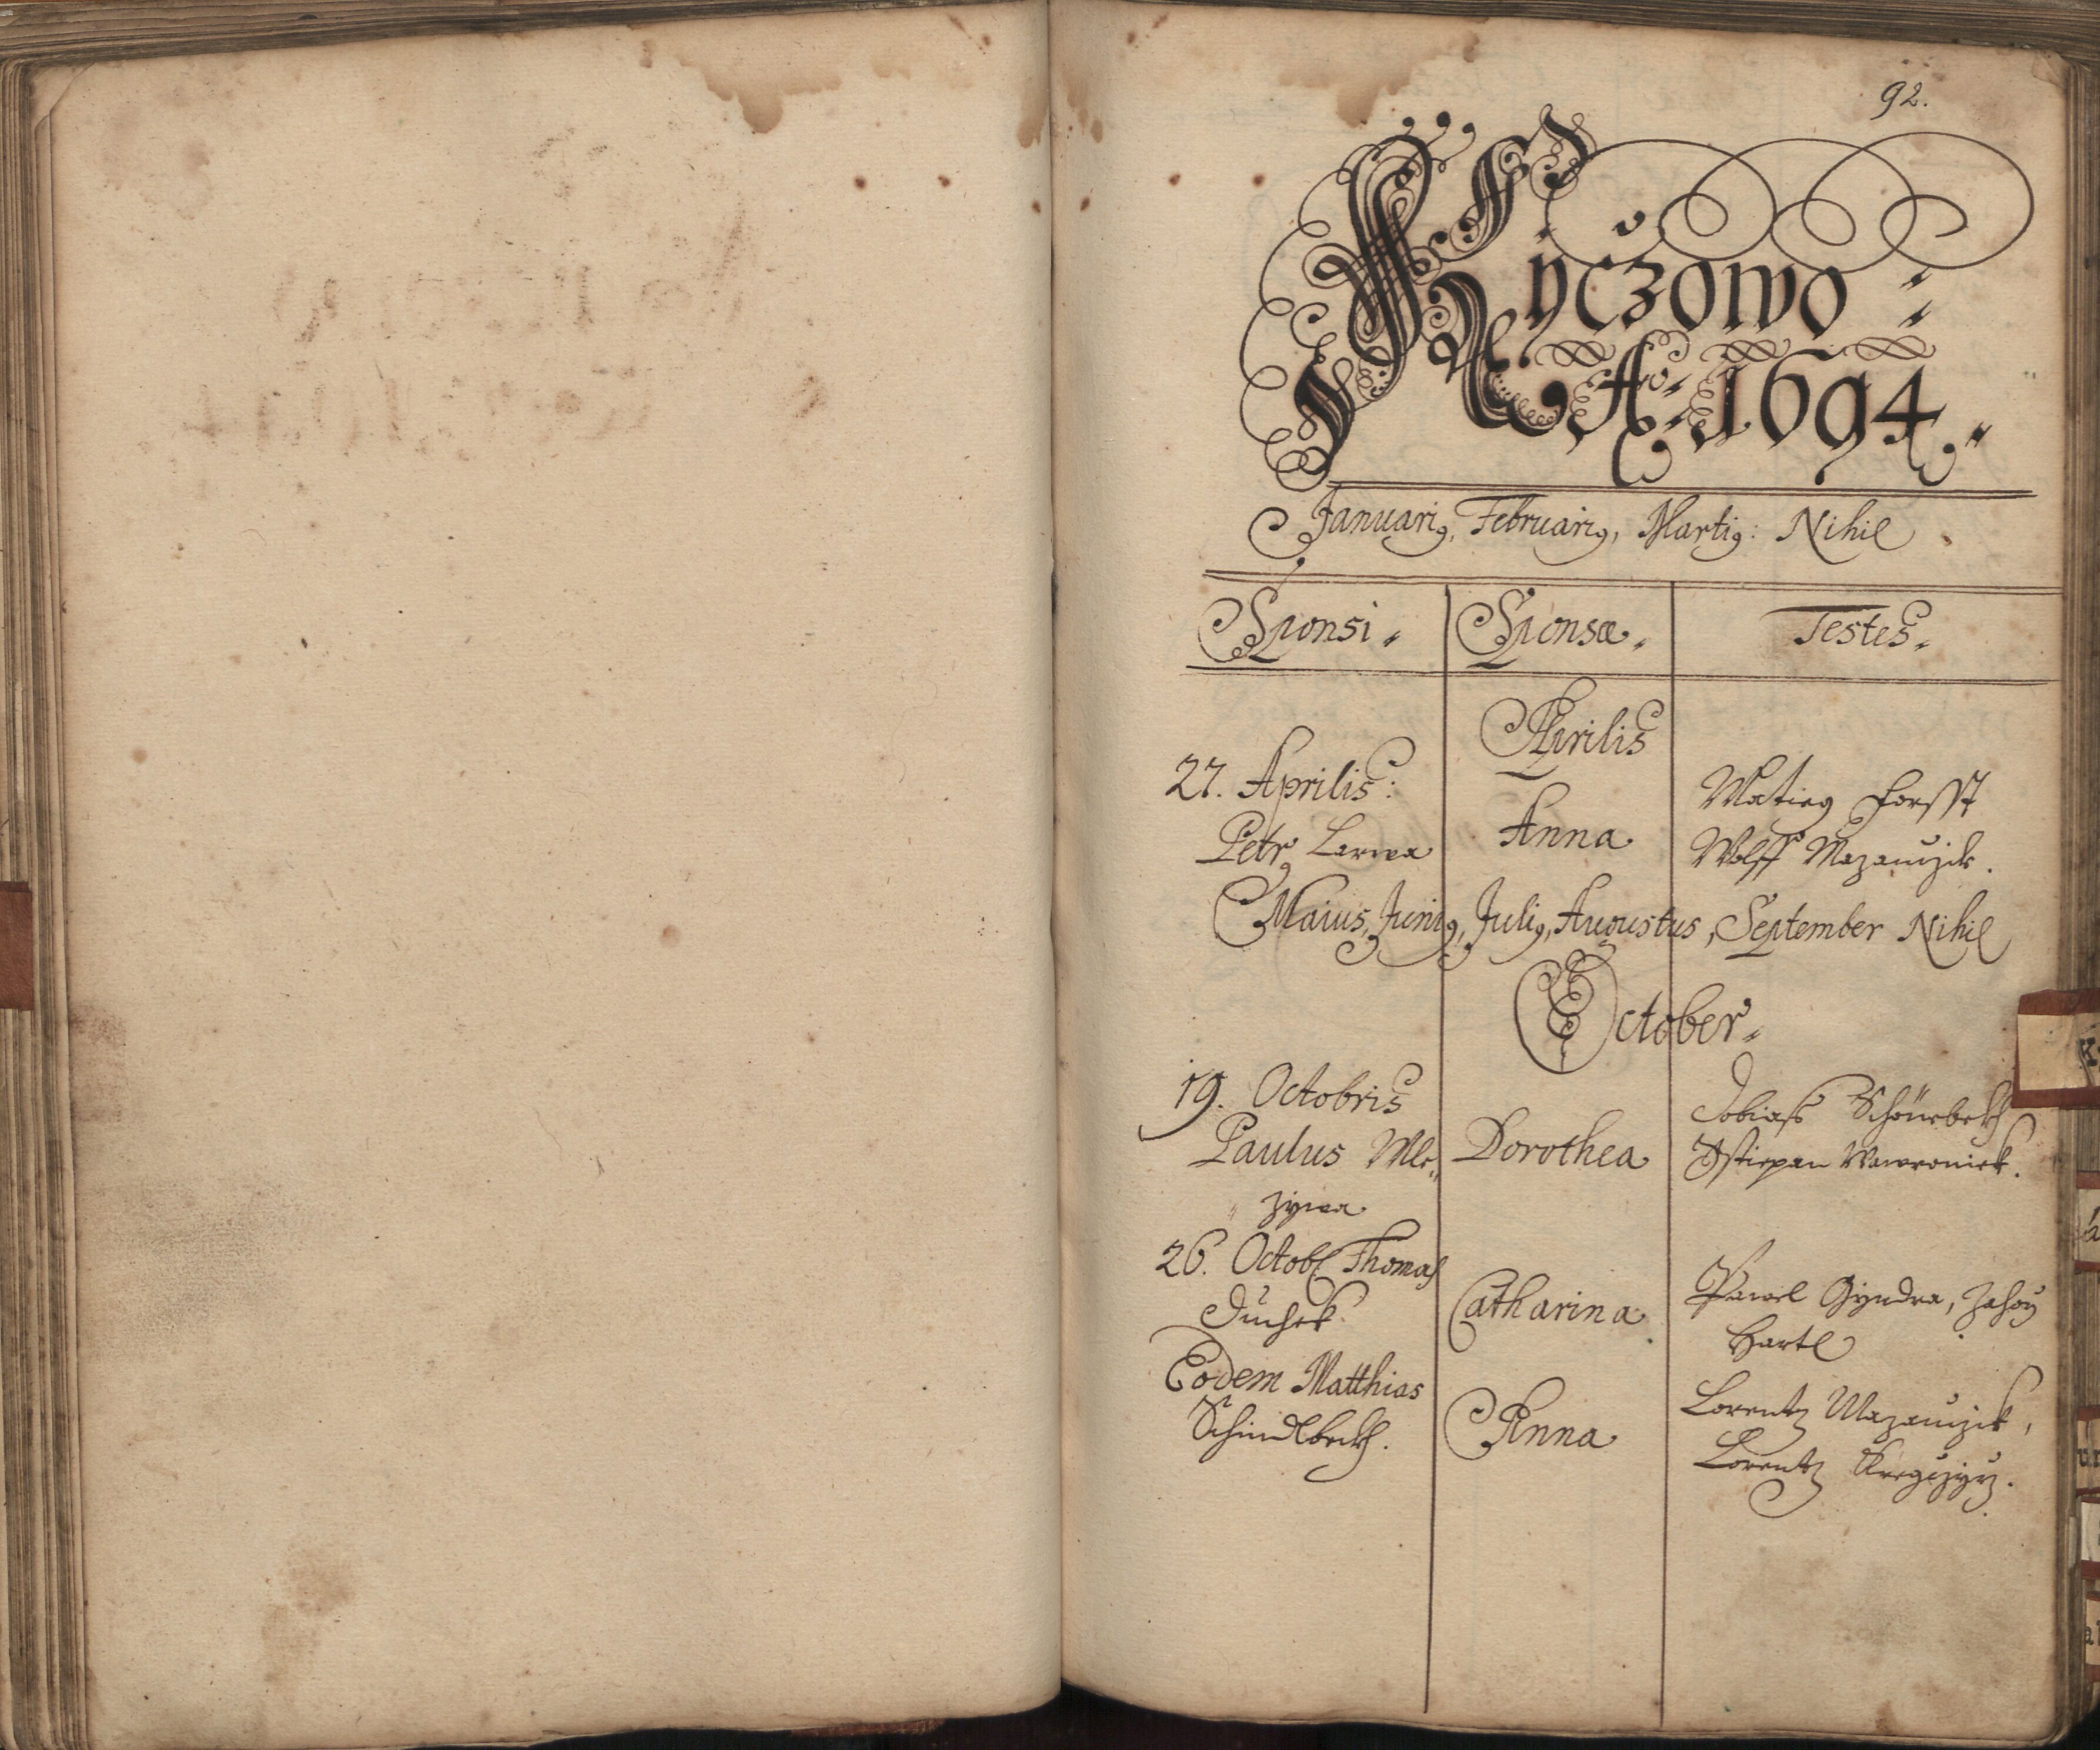 92.
Kyčzowo
Aõ 1694.
Januariꝰ, Februariꝰ, Martiꝰ: Nihil
Sponsi
Sponsæ
Testes
Aprilis
27. Aprilis:
Petrꝰ Larwa
Anna
Matieg Forsst
Wolff Mazanczik.
Maius, Juniꝰ, Juliꝰ, Augustus, September Nihil
October
19. Octobris
Paulus Mle
zywa
Dorothea
Tobiass Schönebekh
Sstiepan Wawroniek.
26. Octob Thomas
Duchek
Catharina
Pawel Gyndra,
Hartl
Eodem Matthias
Schindlbeckh.
Anna
Lorentz Mazanczik,
Lorentz